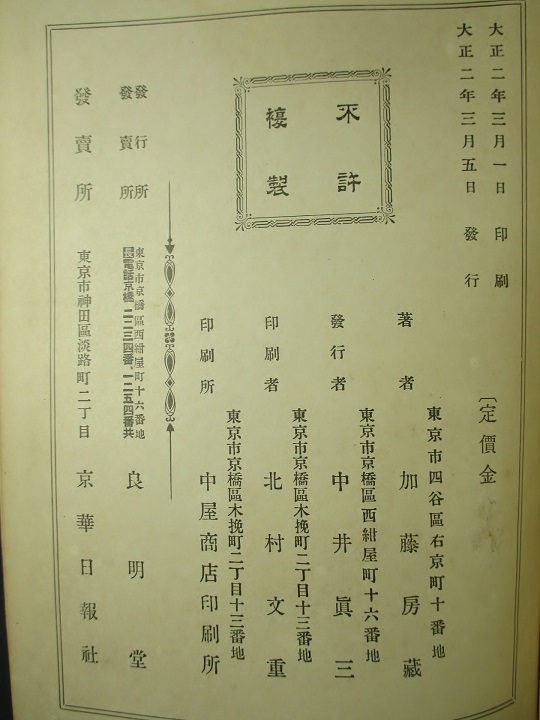 大正二年三月一日印刷
大正二年三月五日發行
〔定價金
不許
複製
東京市四谷區右京町十番地
著者 加藤房藏
東京市京橋區西紺屋町十六番地
發行者 中井眞三
東京市京橋區木挽町二丁目十三番地
印刷者 北村文重
東京市京橋區木挽町二丁目十三番地
印刷所 中屋商店印刷所
發行所
發賣所
東京市京橋區西紺屋町十六番地
電話京橋二二三四番、一二五四番共
良明堂
發賣所 東京市神田區淡路町二丁目 京華日報社